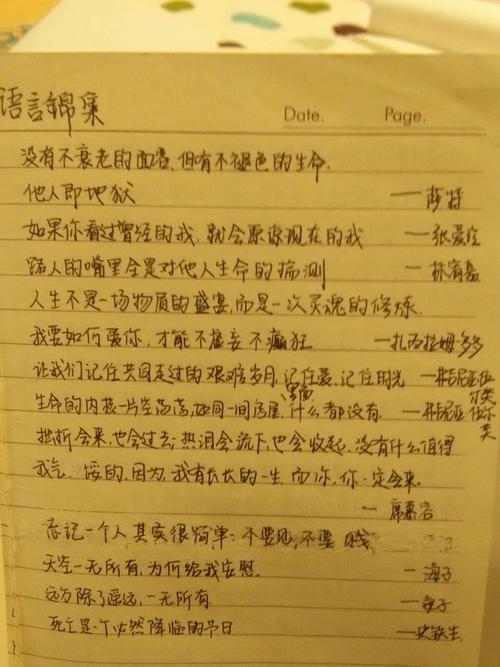 语言锦集
Date. Page.
没有不衰老的面容,但有不褪色的生命.
他人即地狱 —萨特
如果你看过曾经的我,就会原谅现在的我 —张爱玲
路人的嘴里全是对他人生命的揣测 —林宥嘉
人生不是一场物质的盛宴,而是一次灵魂的修炼.
我要如何爱你,才能不羞妄不癫狂 —扎西拉姆·多多
让我们记住共同走过的艰难岁月,记住爱,记住时光
生命的内核一片空荡荡,如同一间房屋,里面什么都没有.
挫折会来,也会过去;热泪会流下,也会收起,没有什么值得
我气 馁的,因为,我有长长的一生 而你,你一定会来.
—席慕容
忘记一个人其实很简单:不要见,不要 贱
天空一无所有,为何给我安慰. —海子
远方除了遥远,一无所有. —海子
死亡是一个必然降临的节日 —史铁生.